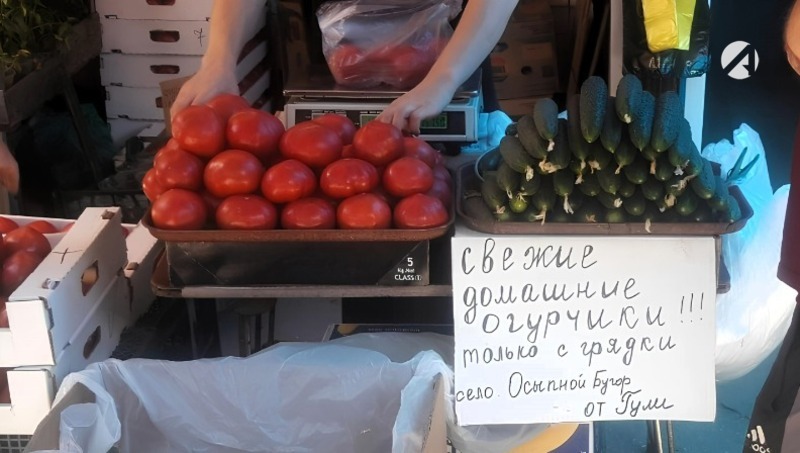 5
Kg.Net
CLASS 1
свежие
домашние
огурчики!!!
только с грядки
село. Осыпной Бугор
от Гули